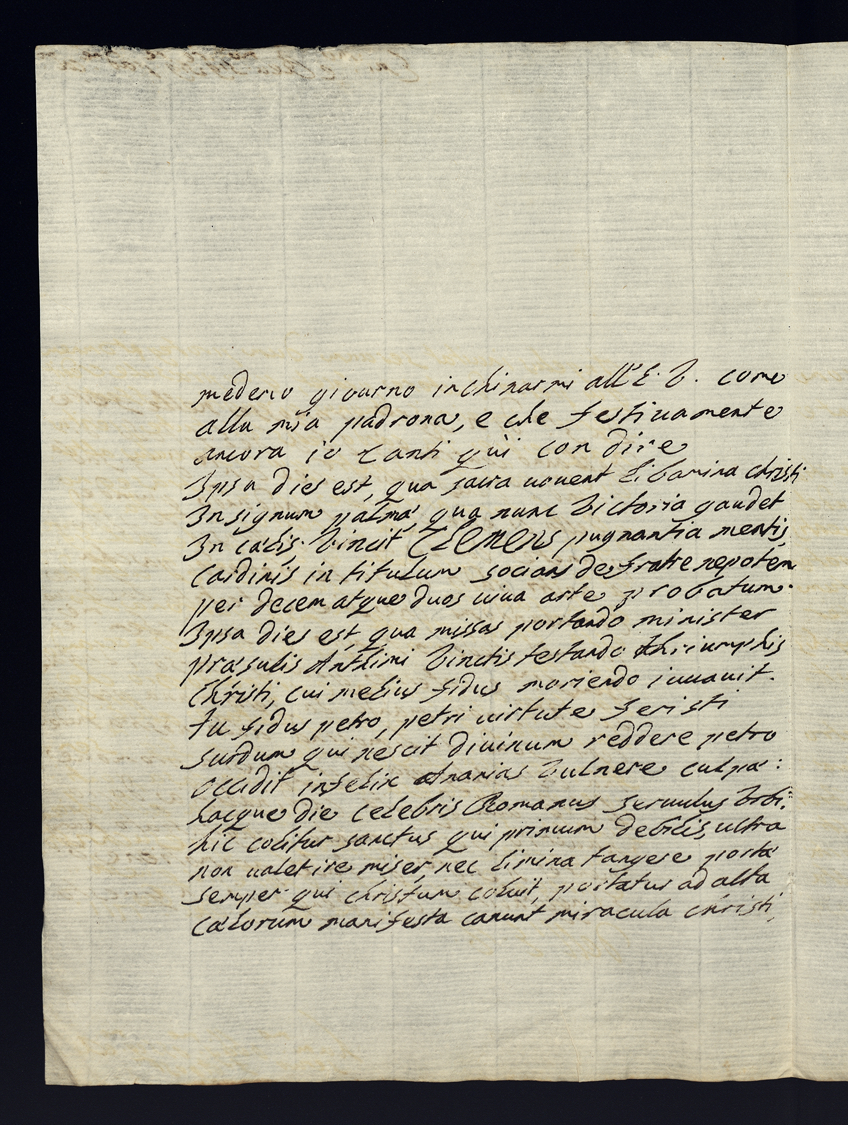 medemo giourno inchinarmi all'E. V. come
alla mia padrona, e che festiuamente
ancora io canti quì con dire
Ipsa dies est, qua sacra uouent libamina christi
In signum palmá, qua nunc Victoria gaudet
In cælis. Vincit CLEMENS pugnantia mentis,
Cardinis in titulum socians de fratre nepotem
per decem atque duos uiua arte probatum.
Ipsa dies est, qua missas portando minister
præsulis Anthimi Vinctis testando thriumphis
Christi, cui melius fidus moriendo iuuauit.
tu fidus petro, petri uirtute feristi
surdum qui nescit diuinum reddere petro
occidit infelix Ananias Vulnere culpá:
hacque die celebris Romanus seruulus Vrbi:
hic colitur sanctus qui primum debilis, ultra
non ualet ire miser, nec limina tangere portá
semper qui christum coluit, portatus ad alta
Cælorum manifesta canunt miracula christi,